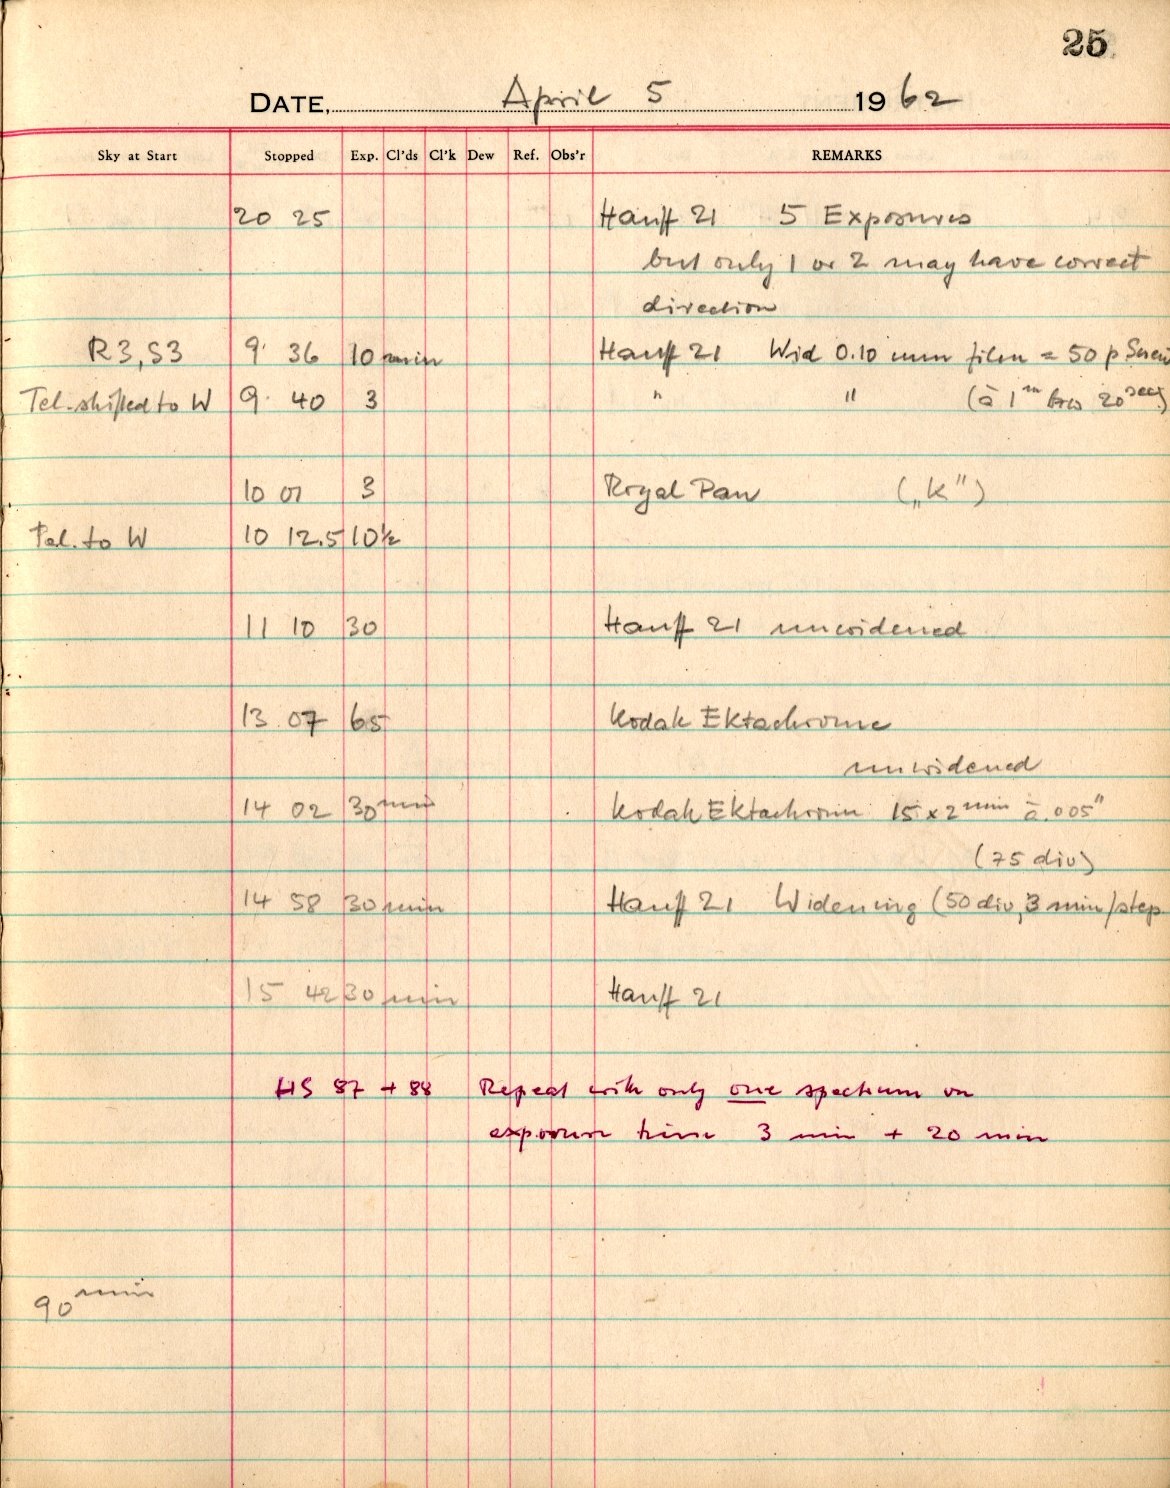 25
DATE, April 5 1962
Sky at Start Stopped Exp. Cl'ds Cl'k Dew Ref. Obs'r REMARKS
20 25 Hauff 21 5 Exposures
but only 1 or 2 may have correct
direction
R3, S3 9 36 10 min Hauff 21 Wid 0.10 mm film = 50 p
Tel. shifted to W 9 40 3 " " (à 1 m 20 sec)
10 01 3 Royal Pan („K")
Tel. to W 10 12.5 10½
11 10 30 Hauff 21 unwidened
13 07 65 Kodak Ektachrome
unwidened
14 02 30 min Kodak Ektachrom 15 x 2 min à .005"
(75 div)
14 58 30 min Hauff 21 Widening (50 div, 3 min/step
15 42 30 min Hauff 21
HS 87 + 88 Repeat with only one spectrum on
exposure time 3 min + 20 min
90 min